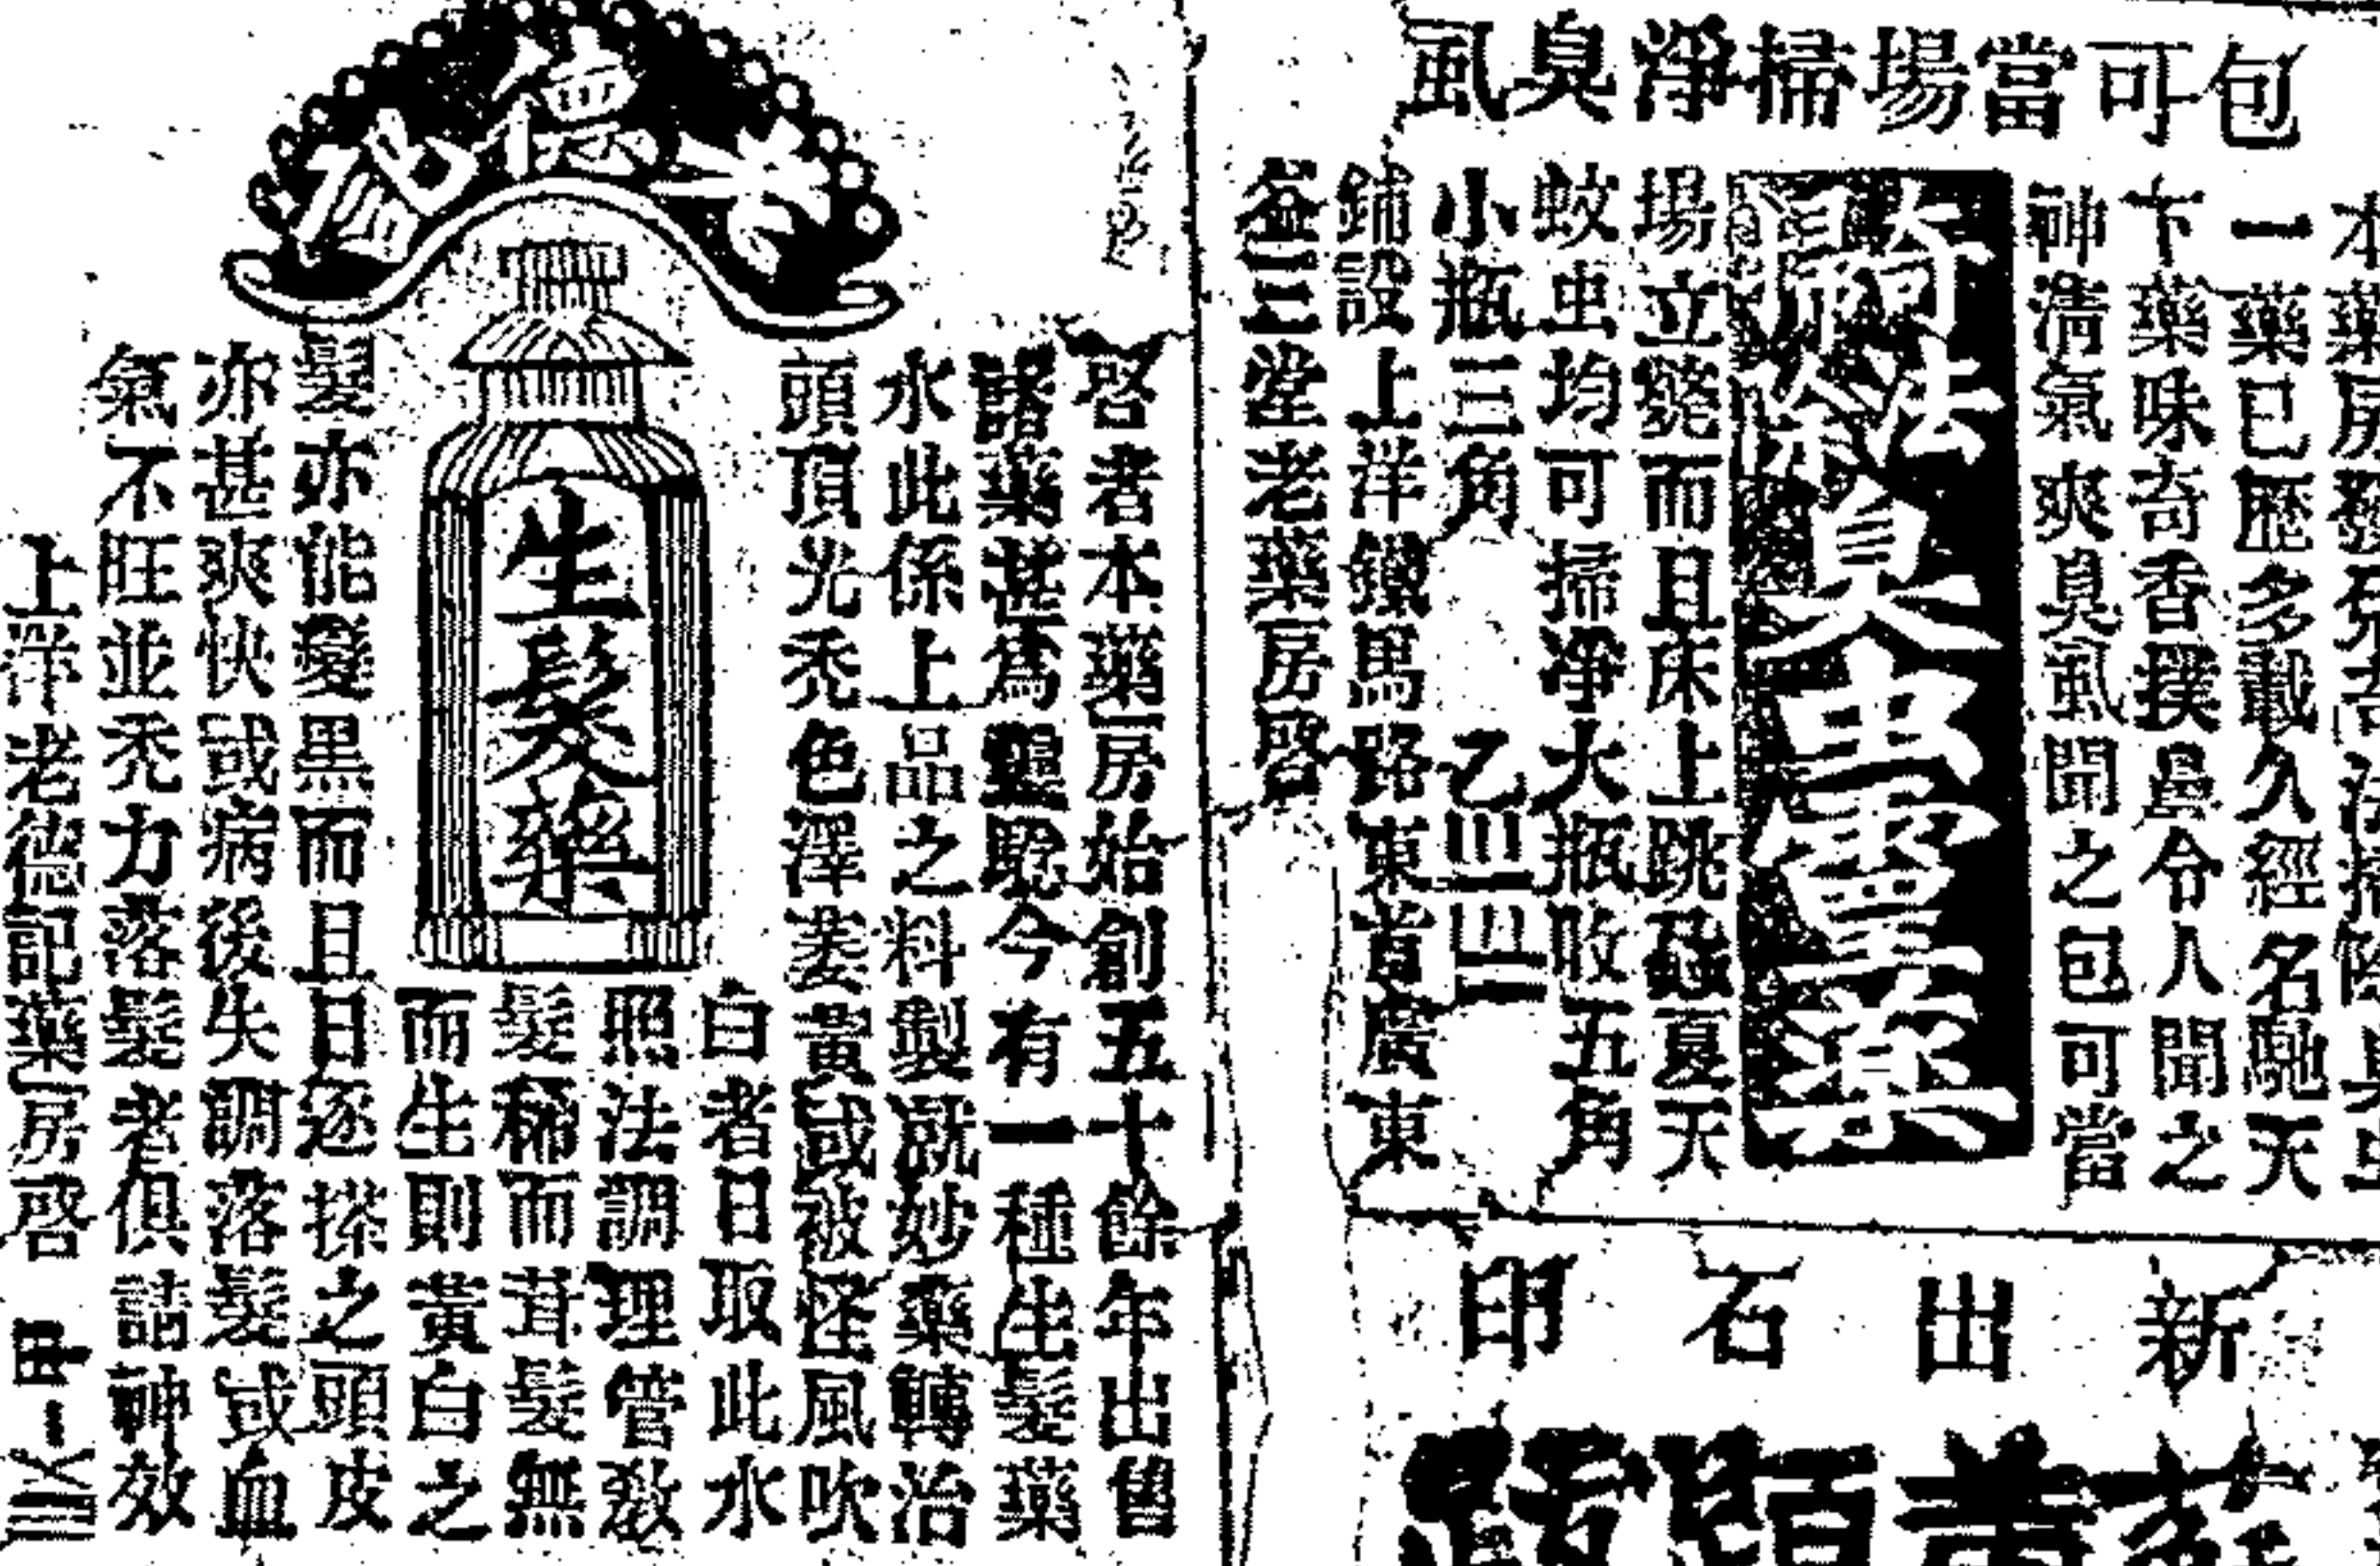 包可當場掃淨臭虱
一藥已歷多載久經名馳天
下藥味奇香撲鼻令人聞之
神清氣爽臭虱聞之包可當
法
除臭虫靈藥
場立斃而且床上跳蝨夏天
蚊虫均可掃净大瓶收五角
小瓶三角
鋪設上洋鐵馬路東首廣東
三堂老藥房啓
新出石印
老德記
生髮藥
啓者本藥房始創五十餘年出售
諸藥甚爲靈驗今有一種生髮藥
水此係上品之料製就妙藥轉治
頭頂光禿色澤萎黃或被怪風吹
白者日取此水
照法調理管教
髮稀而茸髮無
而生則黃白之
髮亦能變黑而且日逐搽之頭皮
亦甚爽快或病後失調落髮或血
氣不旺並禿力落髮者俱請神效
上洋老德記藥房啓